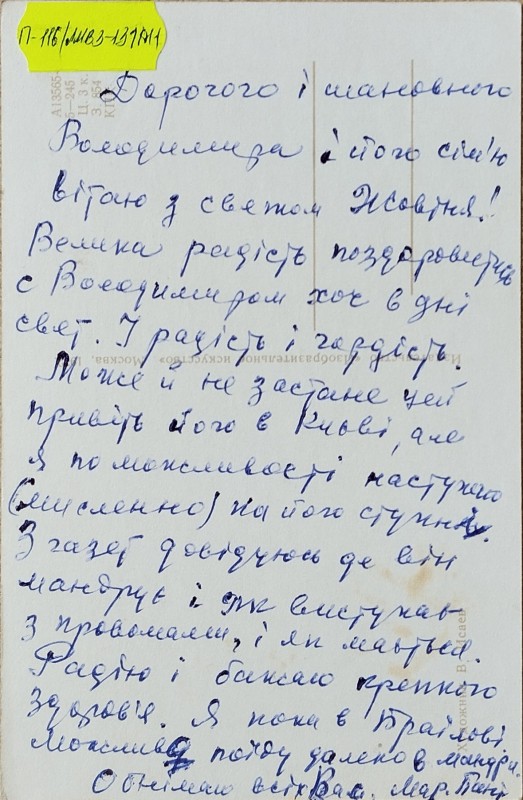 П-116/ЛИВЗ-1394/1
А13565
5—245
Ц. 3 к.
З. 854
Дорогого і шановного
Володимира і його сім'ю
вітаю з святом Жовтня!
Велика радість поздоровитись
с Володимиром хоч в дні
свят. І радість і гордість.
Издательство «Изобразительное искусство». Москва. 19
Може й не застане цей
привіть його в Києві, але
я по можливості наступаю
(мисленно) на його ступні.
З газет довідуюсь де він
мандрує і як виступає
з промовами, і як мається.
Радію і бажаю крепкого
здоров'я. Я поки в Браїлові
Можливо поїду далеко в мандри.
Обнімаю всіх Вас. Мар.
Художник В. Исаев